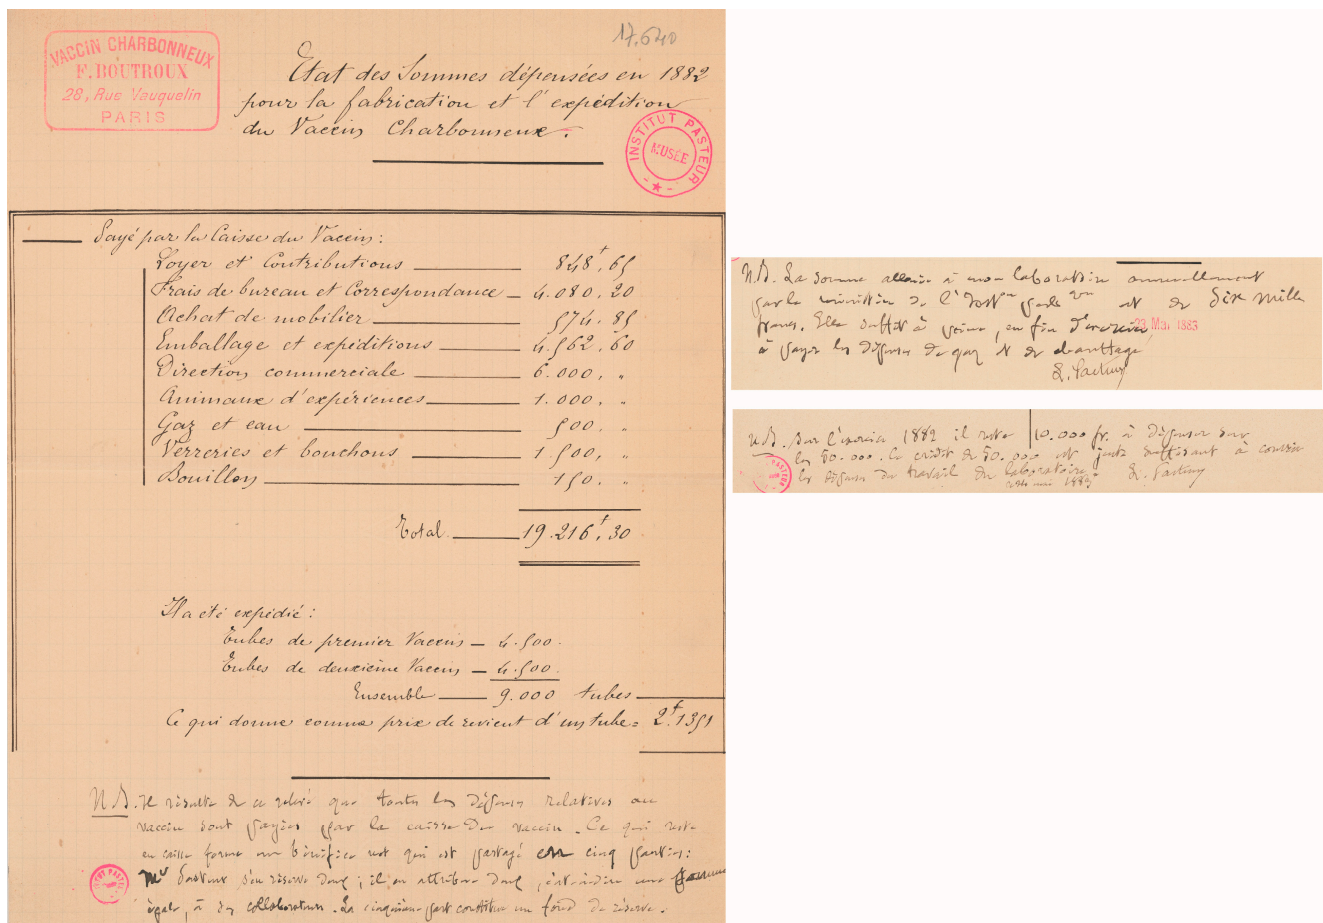 17.640
VACCIN CHARBONNEUX
F. BOUTROUX
28, Rue Vauquelin
PARIS
Etat des Sommes dépensées en 1882
pour la fabrication et l'expédition
du Vaccin Charbonneux.
INSTITUT PASTEUR
MUSÉE
Payé par la Caisse du Vaccin:
Loyer et Contributions 848f,65
Frais de bureau et Correspondance 4.080,20
Achat de mobilier 574.85
Emballage et expéditions 4.562,60
Direction commerciale 6.000, "
Animaux d'expériences 1.000, "
Gaz et eau 500, "
Verreries et bouchons 1.500, "
Bouillon 150, "
Total 19.216f,30
Il a été expédié:
Tubes de premier Vaccin 4.500.
Tubes de deuxième Vaccin 4.500.
Ensemble 9.000 tubes
Ce qui donne comme prix de revient d'un tube = 2f.1351
N.B. Il résulte de ce relevé que toutes les dépenses relatives au
vaccin sont payées par la caisse du vaccin. Ce qui reste
en caisse forme un bénéfice net qui est partagé en cinq parties:
Mr Pasteur s'en réserve deux; il en attribue deux, c'est-à-dire une somme
égale, à ses collaborateurs. La cinquième part constitue un fond de réserve.
N.B. La somme allouée à mon laboratoire annuellement
par le ministère de l'Instion publique est de dix mille
francs. Elle suffit à peine, en fin d'exercice
23 Mai 1883
à payer les dépenses de gaz et de chauffage
L. Pasteur
N.B. Sur l'exercice 1882 il reste 10.000 fr. à dépenser sur
les 50.000. Ce crédit de 50.000 est juste suffisant à couvrir
les dépenses du travail du laboratoire.
mai 1883 L. Pasteur